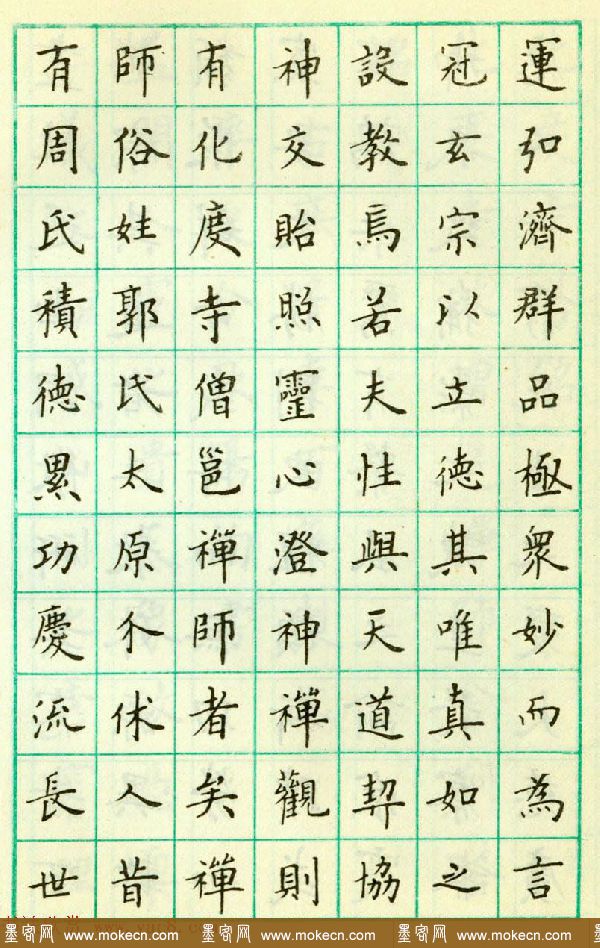 運弘濟群品極衆妙而為言
冠玄宗以立德其唯真如之
設教焉若夫性與天道契協
神交貽照靈心澄神禪觀則
有化度寺僧邕禪師者矣禪
師俗姓郭氏太原介休人昔
有周氏積德累功慶流長世
墨客网 www.mokecn.com 墨客网 www.mokecn.com 墨客网 www.mokecn.com